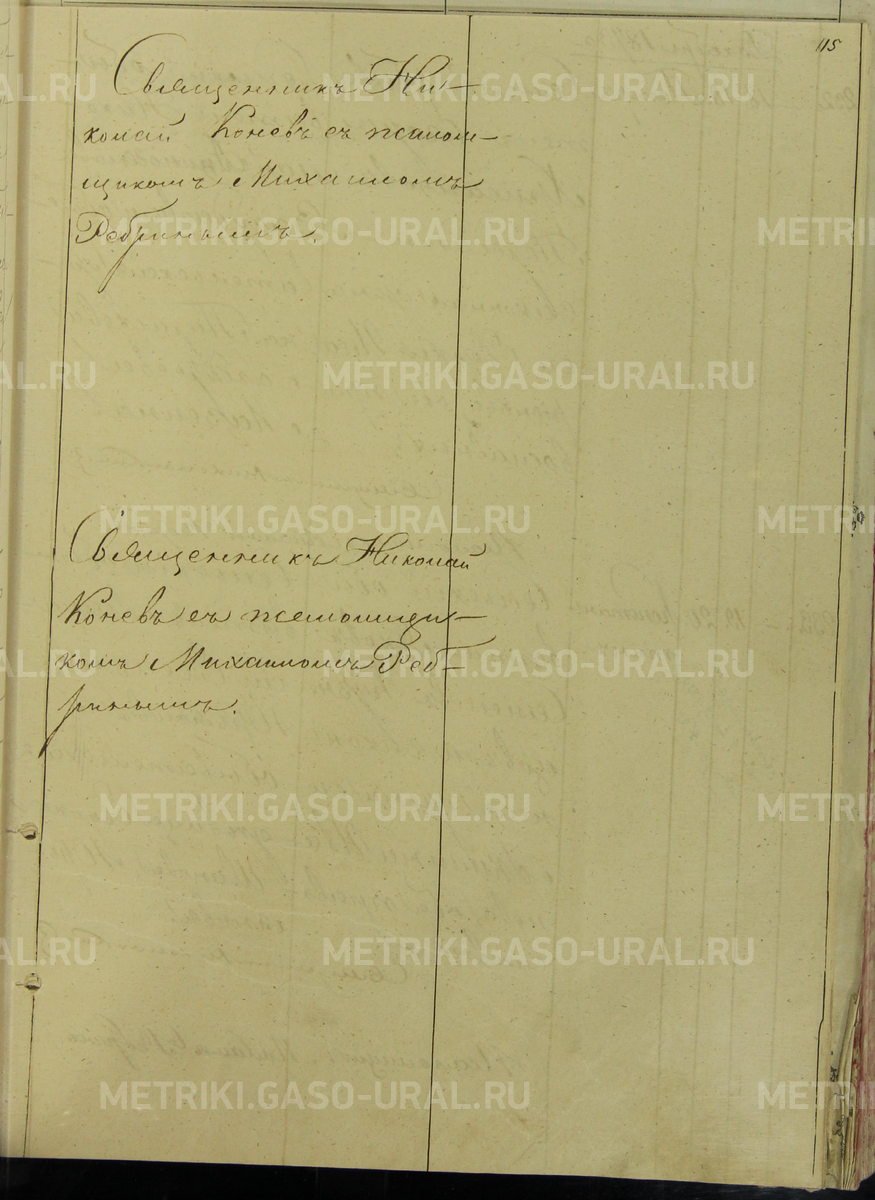 115
Священникъ Ни-
колай Коневъ съ псалом-
щикомъ Михаиломъ
Ребринымъ.
Священникъ Николай
Коневъ съ псаломщи-
комъ Михаиломъ Реб-
ринымъ.
METRIKI.GASO-URAL.RU